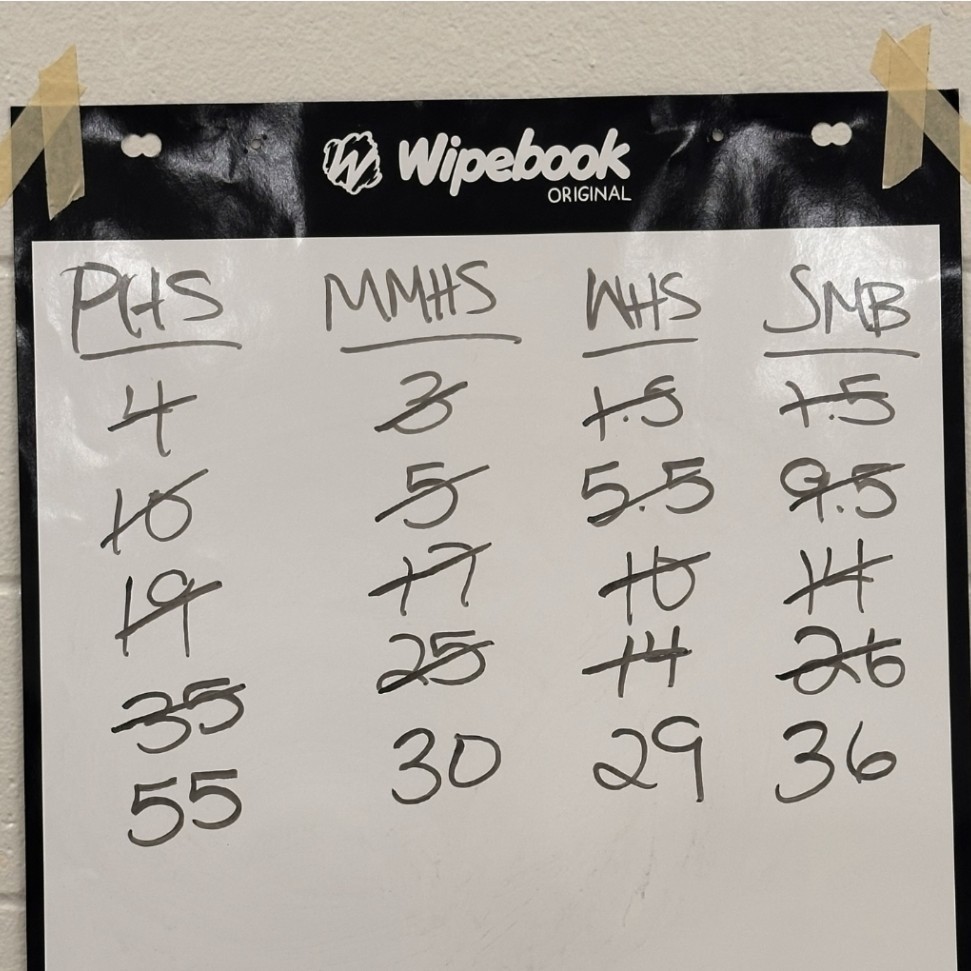 Wipebook
ORIGINAL
PHS MMHS WHS SMB
4 3 1.5 1.5
10 5 5.5 9.5
19 17 10 14
35 25 14 26
55 30 29 36